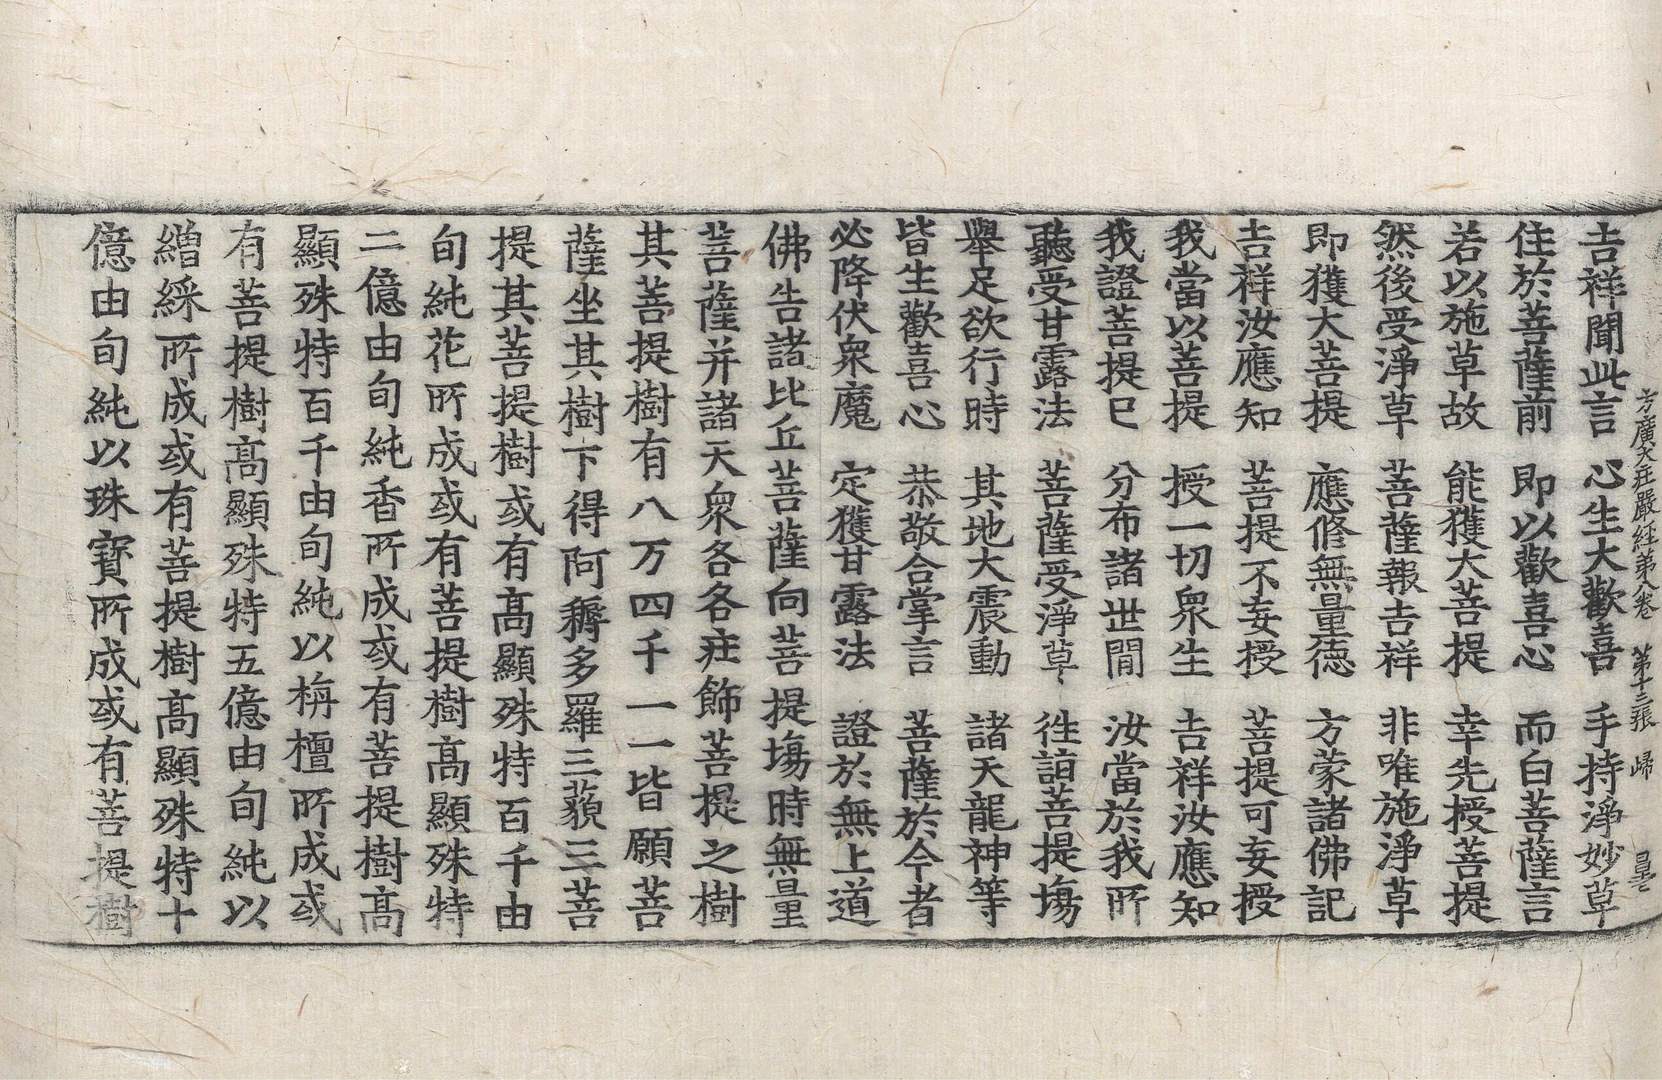 方廣大莊嚴經第八卷　第十三張　歸
吉祥聞此言　心生大歡喜　手持淨妙草
住於菩薩前　即以歡喜心　而白菩薩言
若以施草故　能獲大菩提　幸先授菩提
然後受淨草　菩薩報吉祥　非唯施淨草
即獲大菩提　應修無量德　方蒙諸佛記
吉祥汝應知　菩提不妄授　菩提可妄授
我當以菩提　授一切衆生　吉祥汝應知
我證菩提已　分布諸世間　汝當於我所
聽受甘露法　菩薩受淨草　徃詣菩提場
舉足欲行時　其地大震動　諸天龍神等
皆生歡喜心　恭敬合掌言　菩薩於今者
必降伏衆魔　定獲甘露法　證於無上道
佛告諸比丘菩薩向菩提場時無量
菩薩并諸天衆各各莊飾菩提之樹
其菩提樹有八万四千一一皆願菩
薩坐其樹下得阿耨多羅三藐三菩
提其菩提樹或有高顯殊特百千由
旬純花所成或有菩提樹高顯殊特
二億由旬純香所成或有菩提樹高
顯殊特百千由旬純以栴檀所成或
有菩提樹高顯殊特五億由旬純以
繒綵所成或有菩提樹高顯殊特十
億由旬純以珠寶所成或有菩提樹